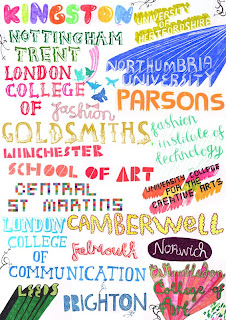 KINGSTON
UNIVERSITY
OF
HERTFORDSHIRE
NOTTINGHAM
TRENT
NORTHUMBRIA
UNIVERSITY
LONDON
COLLEGE
OF
fashion
PARSONS
GOLDSMITHS
fashion
institute of
technology
WINCHESTER
SCHOOL OF ART
UNIVERSITY COLLEGE
FOR THE
CREATIVE ARTS
CENTRAL
ST MARTINS
CAMBERWELL
LONDON
COLLEGE
OF
COMMUNICATION
Falmouth
Norwich
Wimbledon
College of
Art
LEEDS
BRIGHTON